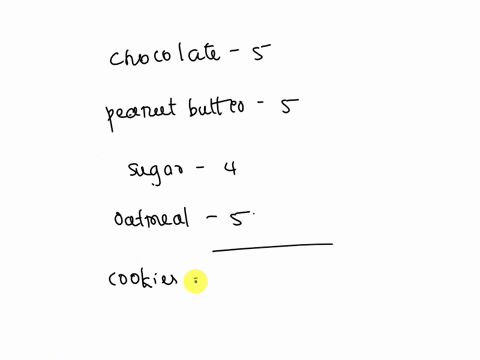 chocolate - 5
peanut butteo - 5
sugar - 4
oatmeal - 5
cookies =